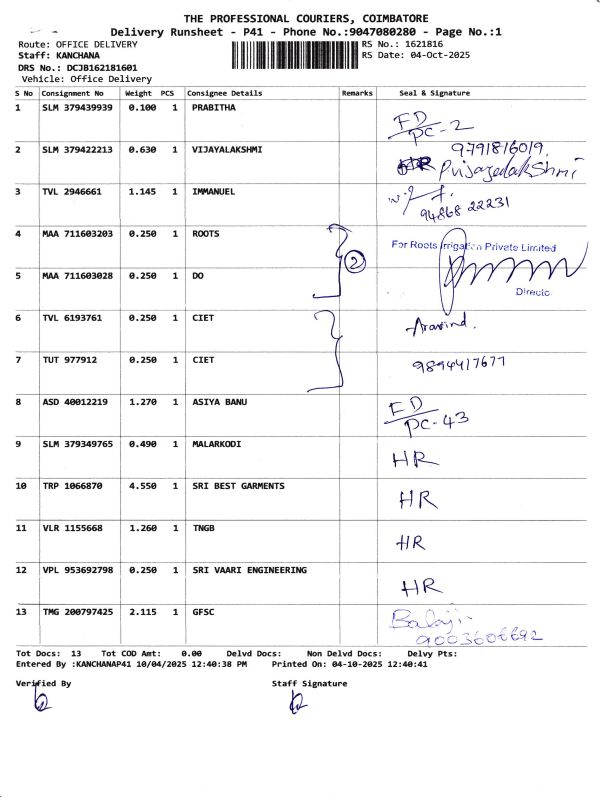 THE PROFESSIONAL COURIERS, COIMBATORE
Delivery Runsheet - P41 - Phone No.:9047080280 - Page No.:1
Route: OFFICE DELIVERY RS No.: 1621816
Staff: KANCHANA RS Date: 04-Oct-2025
DRS No.: DCJB162181601
Vehicle: Office Delivery
S No Consignment No Weight PCS Consignee Details Remarks Seal & Signature
1 SLM 379439939 0.100 1 PRABITHA FD
PC-2
2 SLM 379422213 0.630 1 VIJAYALAKSHMI 9791816019.
3 TVL 2946661 1.145 1 IMMANUEL
94868 22231
4 MAA 711603203 0.250 1 ROOTS For Roots Irrigation Private Limited
2
5 MAA 711603028 0.250 1 DO
Directo
6 TVL 6193761 0.250 1 CIET Aravind.
7 TUT 977912 0.250 1 CIET 9894417677
8 ASD 40012219 1.270 1 ASIYA BANU FD
PC-43
9 SLM 379349765 0.490 1 MALARKODI HR
10 TRP 1066870 4.550 1 SRI BEST GARMENTS HR
11 VLR 1155668 1.260 1 TNGB HR
12 VPL 953692798 0.250 1 SRI VAARI ENGINEERING HR
13 TMG 200797425 2.115 1 GFSC Balaji
9003606692
Tot Docs: 13 Tot COD Amt: 0.00 Delvd Docs: Non Delvd Docs: Delvy Pts:
Entered By :KANCHANAP41 10/04/2025 12:40:38 PM Printed On: 04-10-2025 12:40:41
Verified By Staff Signature